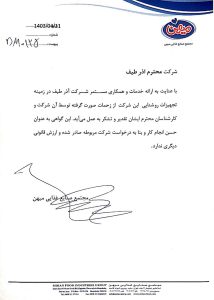 میهن
مجتمع صنایع غذایی میهن
تاریخ: 1403/04/31
شرکت محترم آذر طیف
با عنایت به ارائه خدمات و همکاری مستمر شرکت آذر طیف در زمینه
تجهیزات روشنایی این شرکت از زحمات صورت گرفته توسط آن شرکت و
کارشناسان محترم ایشان تقدیر و تشکر به عمل می‌آید. این گواهی به عنوان
حسن انجام کار و بنا به درخواست شرکت مربوطه صادر شده و ارزش قانونی
دیگری ندارد.
مجتمع صنایع غذائی میهن
MIHAN FOOD INDUSTRIES GROUP